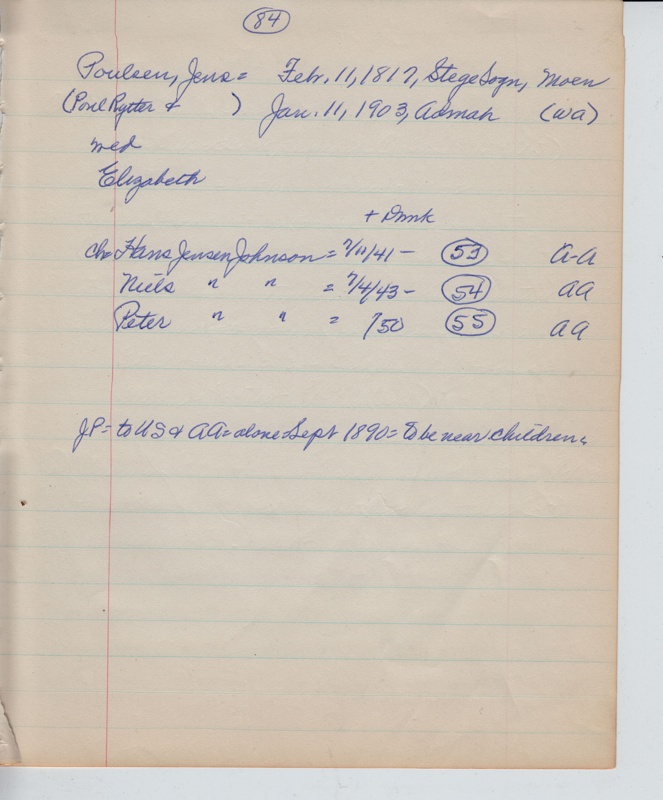 84
Poulsen, Jens = Feb. 11, 1817, Stege Sogn, Moen
(Poul Rytter & ) Jan. 11, 1903, Admah (wa)
med
Elizabeth
+ Dmk
ch = Hans Jensen Johnson = 7/11/41 - 53 A-A
Niels " " = 7/4/43 - 54 AA
Peter " " = /50 55 AA
JP = to US & AA = alone = Sept 1890 = to be near children.